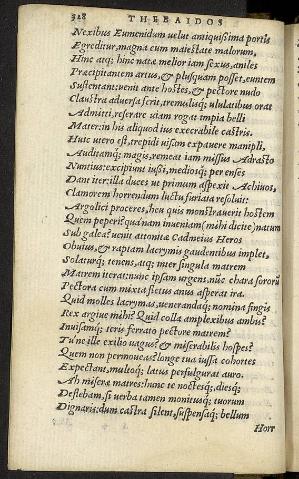 328 THEBAIDOS
Nexibus Eumenidum uelut antiquissima portis
Egreditur, magna cum maiestate malorum,
Hinc atq; hinc natæ melior iam sexus, aniles
Præcipitantem artus, & plusquam posset, euntem
Sustentant: uenit ante hostes, & pectore nudo
Claustra aduersa ferit, tremulisq; ululatibus orat
Admitti, reserare uiam rogat impia belli
Mater: in his aliquod ius execrabile castris.
Huic utero est, trepidi uisam expauere manipli,
Auditamq; magis, remeat iam missus Adrasto
Nuntius: excipiunt iussi, mediosq; per enses
Dant iter: illa duces ut primum aspexit Achiuos,
Clamorem horrendum luctu furiata resoluit:
Argolici proceres, heu quis monstrauerit hostem
Quem peperi? qua nam inueniam (mihi dicite) natum
Sub galea? uenit attonitæ Cadmeius Heros
Obuius, & raptam lacrymis gaudentibus implet,
Solaturq; tenens, atq; inter singula matrem
Matrem iterat: nunc ipsam urgens, nūc chara sororū
Pectora cum mixta fletus anus asperat ira.
Quid molles lacrymas, uenerandaq; nomina fingis
Rex argiue mihi? Quid colla amplexibus ambis?
Inuisamq; teris ferrato pectore matrem?
Tu'ne ille exilio uagus? & miserabilis hospes?
Quem non permoueas? longe tua iussa cohortes
Expectant, multoq; latus perfulgurat auro.
Ah miseræ matres: hunc te noctesq;, diesq;
Deflebam, si uerba tamen monitusq; tuorum
Dignaris: dum castra silent, suspensaq; bellum
Horr